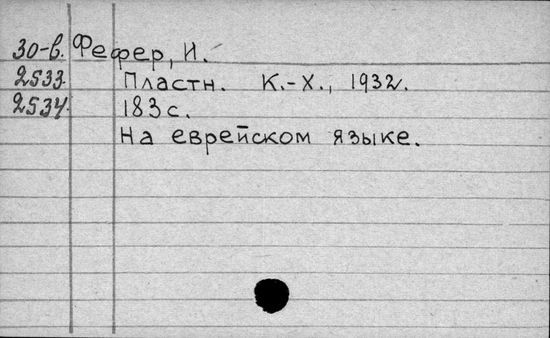 30-в. Фефер, И.
2533 Пластн. К.-Х., 1932.
2534 183 с.
На еврейском языке.